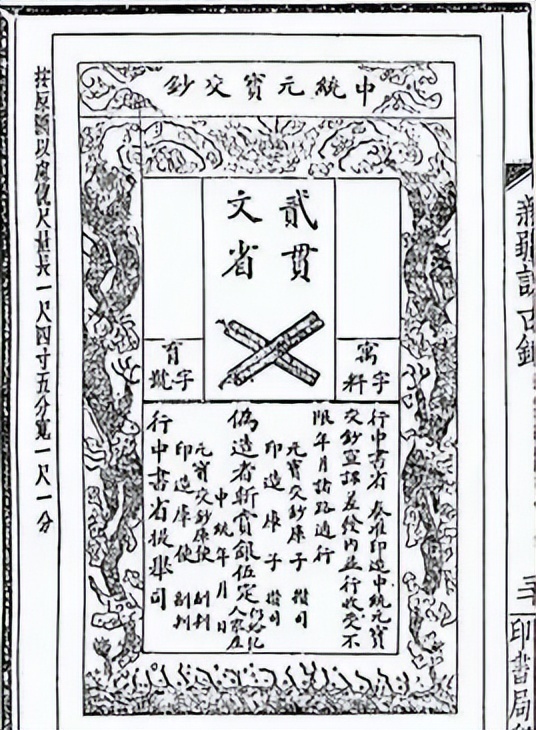 中統元寶交鈔
貳貫
文省
寓字料
育字號
行中書省 奏准印造中統元寶
交鈔宣課差發內並行收受不
限年月諸路通行
元寶交鈔庫子 攢司
印造庫子 攢司
偽造者斬賞銀伍定仍給犯人家產
中統年月日
元寶交鈔庫使 副判
印造庫使 副判
行中書省提舉司
尺量長一尺四寸五分寬一尺一分
古錄
印書局